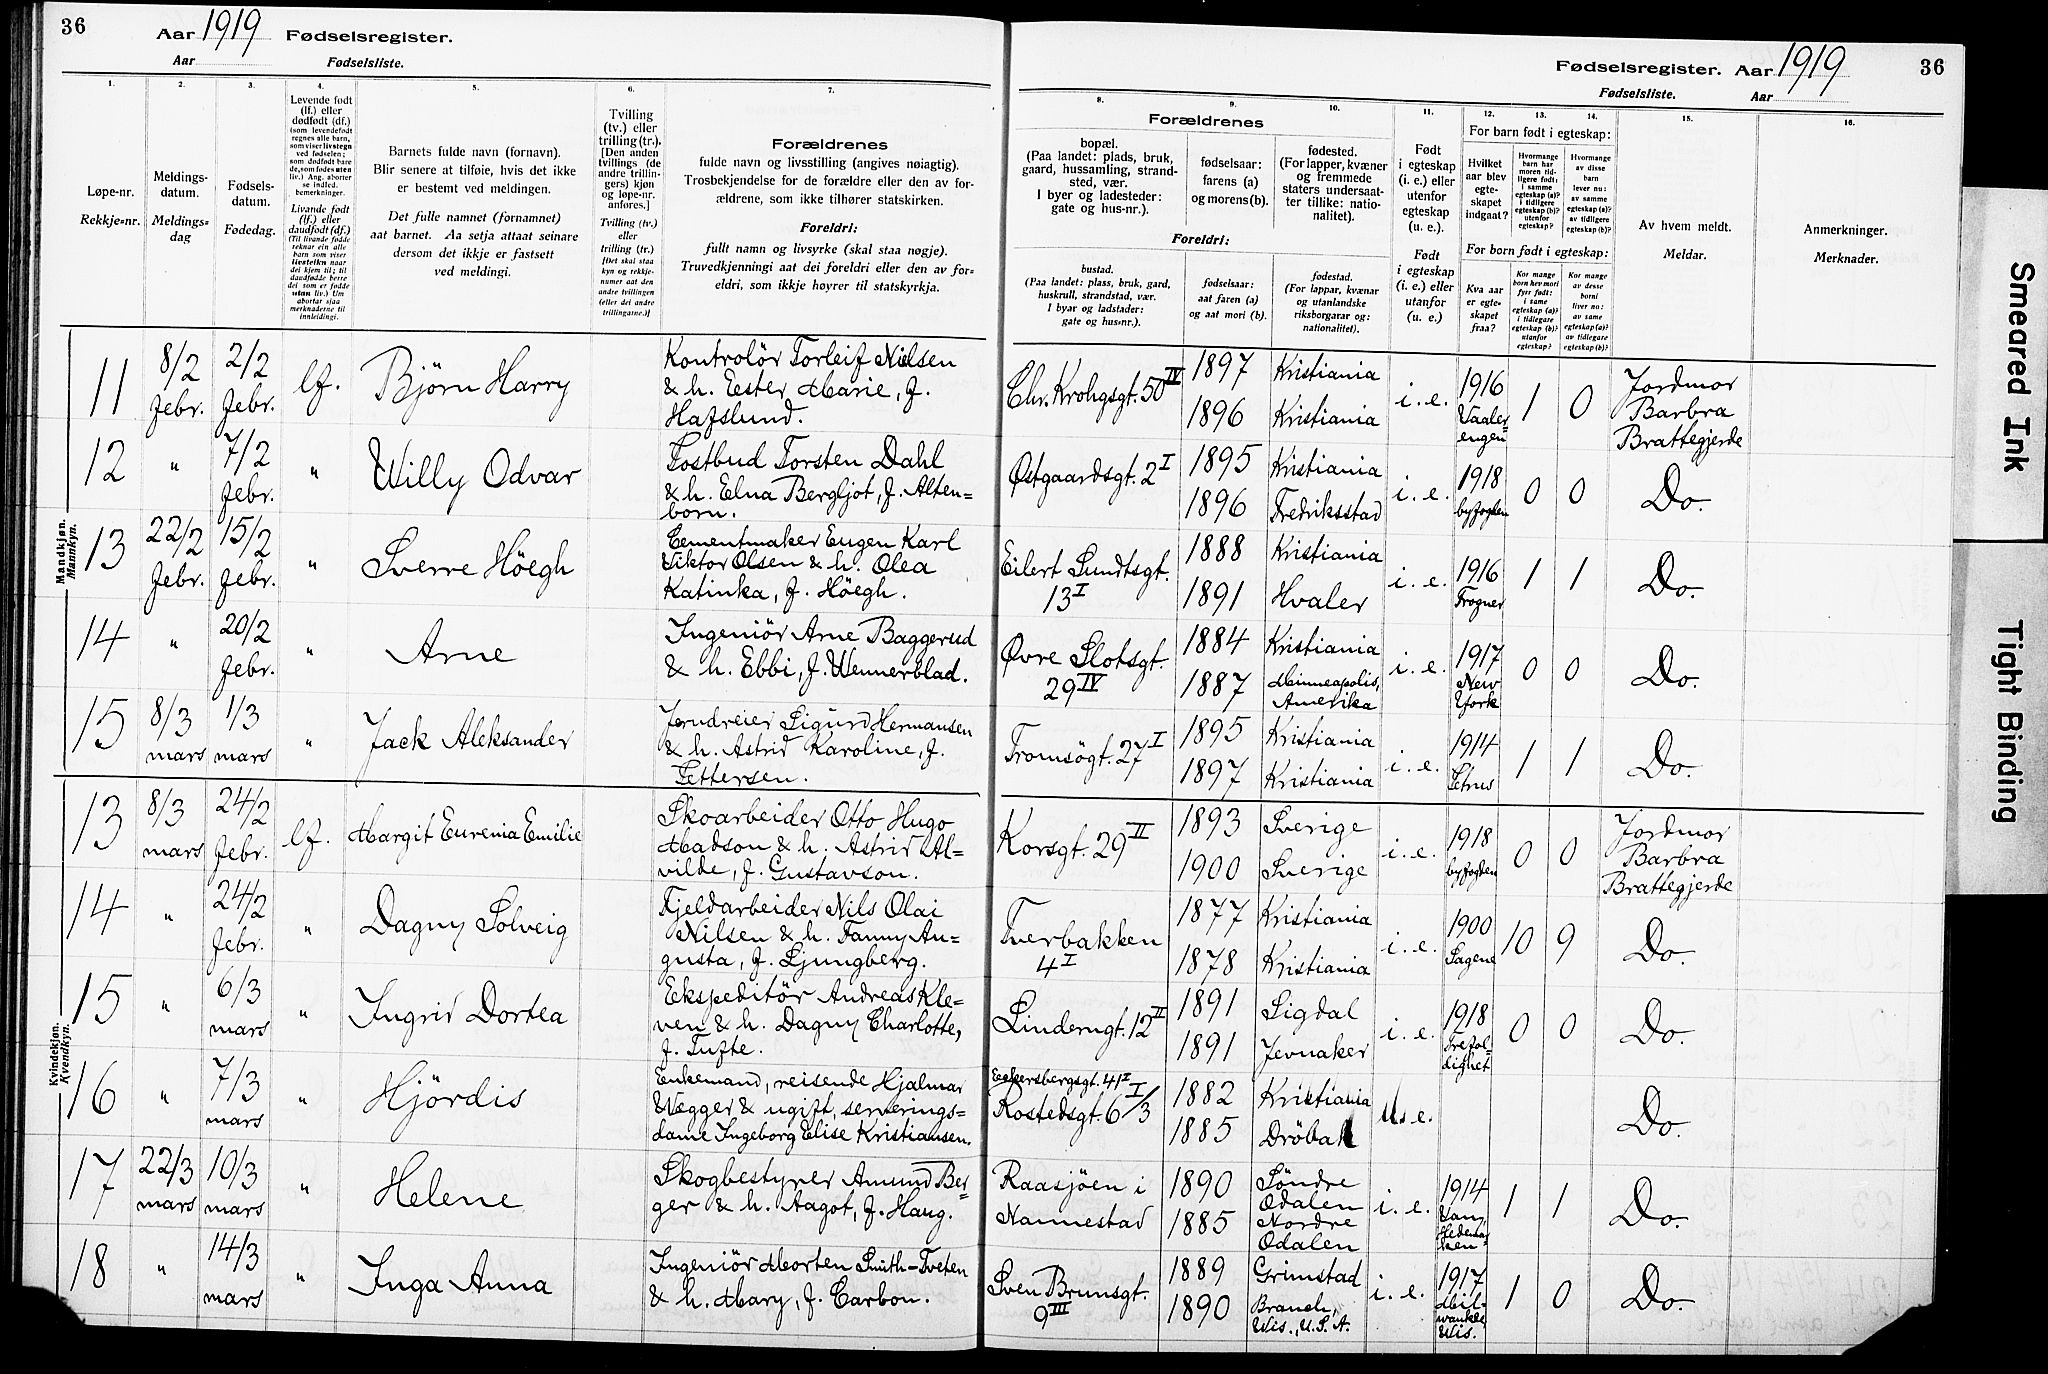 36
Aar 1919 Fødselsregister.
Aar Fødselsliste.
Fødselsregister. Aar 1919
36
Fødselsliste. Aar
1.
Løpe-nr.
Rekkje=nr.
2.
Meldings-
datum.
Meldings=
dag
3.
Fødsels-
datum.
Fødedag.
4.
Levende født
(lf.) eller
dødfødt (df.)
(som levendefødt
regnes alle barn,
som viser livstegn
ved fødselen;
som dødfødt bare
de, som fødes uten
liv.) Ang. aborter
se indled.
bemerkninger.
Livande født
(lf.) eller
daudfødt (df.)
(Til livande fødde
reknar ein alle
barn som viser
livsteikn naar
dei kjem til; til
daudfødde berre
dei som er fødde
utan liv.) Um
abortar sjaa
merknaderne til
innleidingi.
5.
Barnets fulde navn (fornavn).
Blir senere at tilføie, hvis det ikke
er bestemt ved meldingen.
Det fulle namnet (fornamnet)
aat barnet. Aa setja attaat seinare
dersom det ikkje er fastsett
ved meldingi.
6.
Tvilling
(tv.) eller
trilling (tr.).
[Den anden
tvillings (de
andre trillin-
gers) kjøn
og løpe-nr.
anføres.]
Tvilling (tv.)
eller
trilling (tr.)
[Det skal staa
kyn og rekkje-
numer aat den
andre tvillingen
(eller dei andre
trillingarne.)]
7.
Forældrenes
fulde navn og livsstilling (angives nøiagtig).
Trosbekjendelse for de forældre eller den av for-
ældrene, som ikke tilhører statskirken.
Foreldri:
fullt namn og livsyrke (skal staa nøgje).
Truvedkjenningi aat dei foreldri eller den av for=
eldri, som ikkje høyrer til statskyrkja.
8.
Forældrenes
bopæl.
(Paa landet: plads, bruk,
gaard, hussamling, strand-
sted, vær.
I byer og ladesteder:
gate og hus-nr.).
Foreldri:
bustad.
(Paa landet: plass, bruk, gard,
huskrull, strandstad, vær.
I byar og ladstader:
gate og hus=nr.).
9.
fødselsaar:
farens (a)
og morens (b).
fødselsaar:
aat faren (a)
og aat mori (b).
10.
fødested.
(For lapper, kvæner
og fremmede
staters undersaat-
ter tillike: natio-
nalitet).
fødestad.
(For lappar, kvænar
og utanlandske
riksborgarar og:
nationalitet).
11.
Født
i egteskap
(i. e.) eller
utenfor
egteskap
(u. e.).
Født
i egteskap
(i. e.) eller
utanfor
(u. e.)
12. 13. 14.
For barn født i egteskap:
Hvilket
aar blev
egte-
skapet
indgaat?
Hvormange
barn har
moren tid-
ligere født:
i samme
egteskap (a)?
i tidligere
egteskap (b)?
utenfor
egteskap?
Hvormange
av disse
barn
lever nu:
av samme
egteskap (a)?
av tidligere
egteskap (b)?
For born født i egteskap:
Kva aar
er egte-
skapet
fraa?
Kor mange
born hev mori
fyrr født:
i same
egteskap (a)?
i tidlegare
egteskap (b)?
utanfor
egteskap?
Kor mange
av desse
borni
liver nu:
av same
egteskap (a)?
av tidlegare
egteskap (b)?
15.
Av hvem meldt.
Meldar.
16.
Anmerkninger.
Merknader.
Mandkjøn.
Mannkyn.
11 8/2 febr. 2/2 febr. lf. Björn Harry
Kontrolör Torleif Nilsen
& h. Ester Marie, f.
Hafslund.
Chr. Krohgsgt. 50 IV 1897 1896 Kristiania Kristiania i. e. 1916 Vaaler=engen 1 0 Jordmor Barbra Brattegjerde
12 " 7/2 febr. " Willy Odvar
Postbud Torsten Dahl
& h. Elna Bergljot, f. Alten=
born.
Østgaardsgt. 2 I 1895 1896 Kristiania Fredriksstad i. e. 1918 byfogden 0 0 Do.
13 22/2 febr. 15/2 febr. " Sverre Höegh
Cementmaker Eugen Karl
Viktor Olsen & h. Olea
Katinka, f. Höegh.
Eilert Sundtsgt. 13 I 1888 1891 Kristiania Hvaler i. e. 1916 Frogner 1 1 Do.
14 " 20/2 febr. " Arne
Ingeniör Arne Baggerud
& h. Ebbi, f. Wennerblad.
Øvre Slotsgt. 29 IV 1884 1887 Kristiania Minneapolis, Amerika i. e. 1917 New York 0 0 Do.
15 8/3 mars 1/3 mars " Jack Aleksander
Jerndreier Sigurd Hermansen
& h. Astrid Karoline, f.
Pettersen.
Tromsögt. 27 I 1895 1897 Kristiania Kristiania i. e. 1914 Petrus 1 1 Do.
Kvindekjøn.
Kvendkyn.
13 8/3 mars 24/2 febr. lf. Margit Eurenia Emilie
Skoarbeider Otto Hugo
Madson & h. Astrid Al=
vilde, f. Gustavson.
Korsgt. 29 II 1893 1900 Sverige Sverige i. e. 1918 byfogden 0 0 Jordmor Barbra Brattegjerde
14 " 24/2 febr. " Dagny Solveig
Fjeldarbeider Nils Olai
Nilsen & h. Fanny Au=
gusta, f. Ljungberg.
Tverbakken 4 I 1877 1878 Kristiania Kristiania i. e. 1900 Sagene 10 9 Do.
15 " 6/3 mars " Ingrid Dortea
Ekspeditör Andreas Kle=
ven & h. Dagny Charlotte,
f. Tufte.
Linderngt. 12 II 1891 1891 Sigdal Jevnaker i. e. 1918 Trefol=dighet 0 0 Do.
16 " 7/3 mars " Hjördis
Enkemand, reisende Hjalmar
Wegger & ugift, serverings=
dame Ingeborg Elise Kristiansen.
Eckersbergsgt. 41 I
Rostedsgt. 6 I/3 1882 1885 Kristiania Dröbak u. e. Do.
17 22/3 mars 10/3 mars " Helene
Skogbestyrer Amund Ber=
ger & h. Aagot, f. Haug.
Raasjöen i Nannestad 1890 1885 Söndre Odalen Nordre Odalen i. e. 1914 Vang, Hedemarken 1 1 Do.
18 " 14/3 mars " Inga Anna
Ingeniör Morten Smith-Tveten
& h. Mary, f. Carbon.
Sven Brunsgt. 9 III 1889 1890 Grimstad Branch, Wis., U.S.A. i. e. 1917 Milwaukee Wis. 1 0 Do.
Smeared Ink
Tight Binding